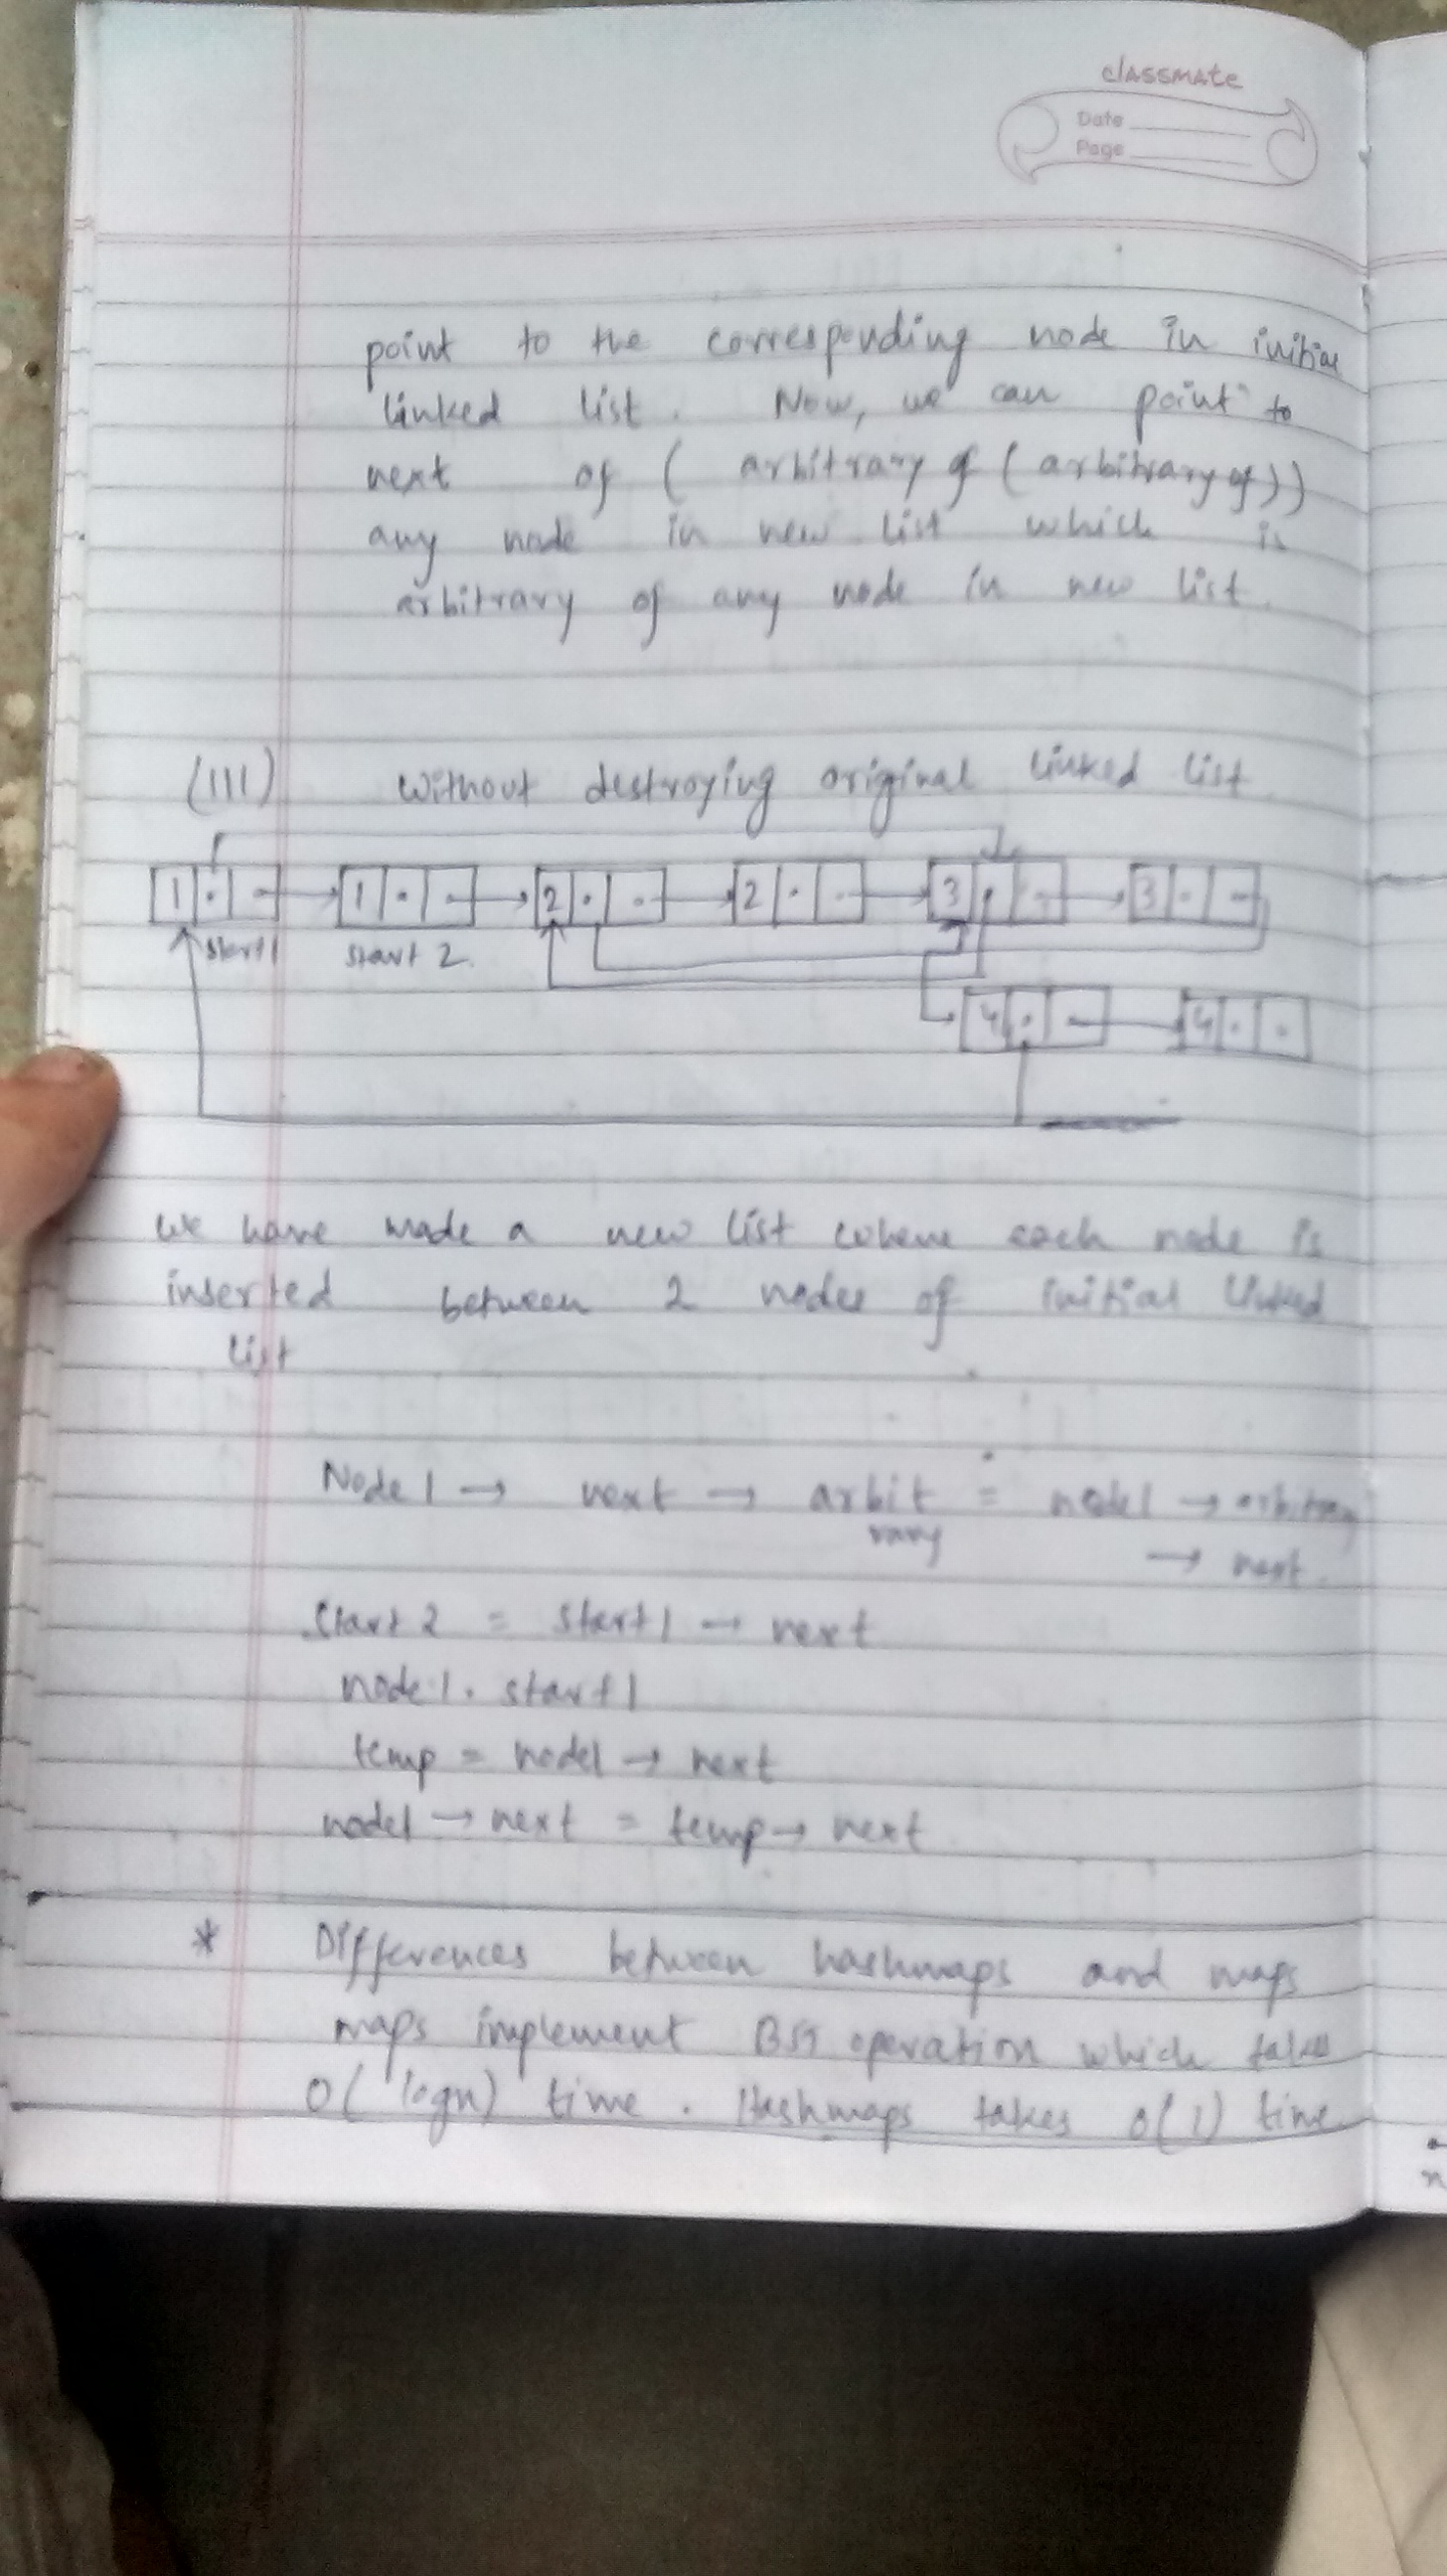 classmate
Date
Page
point to the corresponding node in initial
linked list. Now, we can point to
next of ( arbitrary of ( arbitrary of))
any node in new list which is
arbitrary of any node in new list.
(III) Without destroying original linked list
1 1 2 2 3 3
start1 start 2.
4 4
we have made a new list where each node is
inserted between 2 nodes of initial linked
list
Node 1 → next → arbit = node1 → arbitrary
rary → next.
Start 2 = start1 → next
node1. start1
temp = node1 → next
node1 → next = temp → next
* Differences between hashmaps and maps
maps implement BST operation which takes
O( logn) time. Hashmaps takes O(1) time